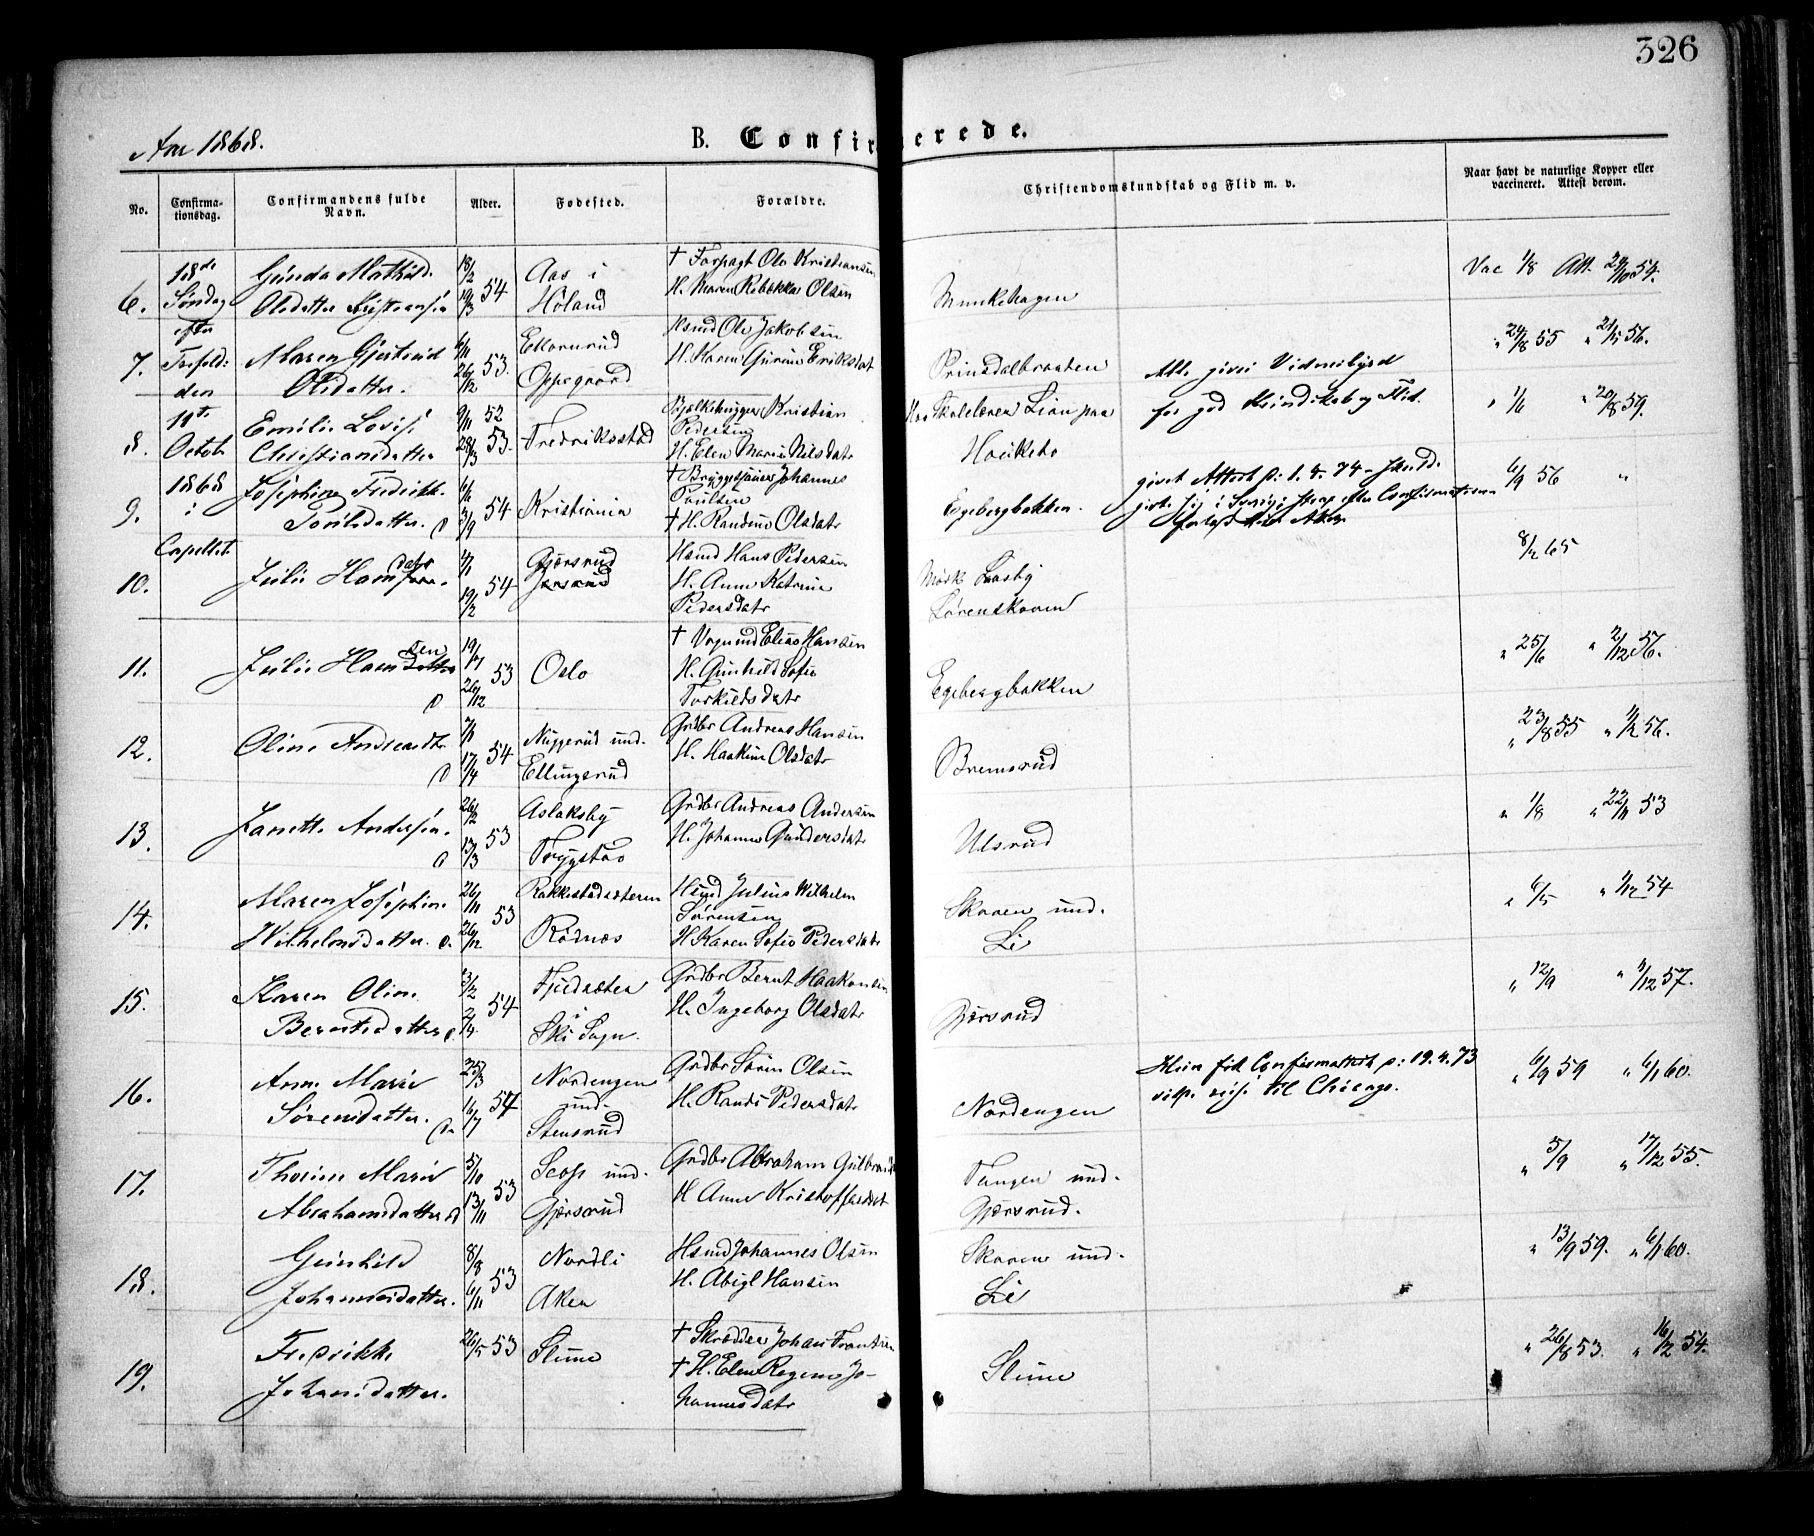 326
Aar 1868.
B. Confirmerede.
No.
Confirma-
tionsdag.
Confirmandens fulde
Navn.
Alder.
Fødested.
Forældre.
Christendomskundskab og Flid m. v.
Naar havt de naturlige Kopper eller
vaccineret. Attest derom.
18de
Søndag
efter
Trefoldi:
den
11te
Octobr
1868
i
Capellet
6.
Gunda Mathild.
Olsdatter Kristiansen
18/2
19/3 54
Aas i
Høland
† Forpagt Ole Kristiansen
H. Maren Rebekka Olsen
Munkehagen
Vac 1/8 Att. 29/10 54.
7.
Maren Gjertrud
Olsdatter.
6/11
26/12 53.
Ekornrud
Oppegaard
Hsmd Ole Jakobsen
H. Karen Gurine Eriksdat
Prinsdalbraaten
" 24/8 55 " 21/5 56.
8.
Emilie Lovise
Christiansdatter
9/11 52
28/3 53.
Fredriksstad
Bjælkehugger Kristian
Pedersen
H. Elen Marie Nilsdatr
Hos Skolelærer Lian paa
Hauketo
Att. givet Vidnesbyrd
for god Kundskab og Flid.
" 1/6 " 20/8 59.
9.
Josephine Fredrikk.
Poulsdatter. d
6/2
3/9 54
Kristiania
† Bryggetjener Johannes
Poulsen
† H. Randine Olsdatr
Egebergbakken.
givet Attest p: 1.8.74 -
gift sig i Sverige strax efter Confirmationen
6/9 56 "
10.
Julie Hansdatr.
4/1
19/2 54
Gjersrud
Hsmd Hans Pedersen
H. Anne Katrine
Pedersdatr
Mosk Laasby
Lørenskoven
8/2 65
11.
Julie Hansen
d
19/11
26/12 53
Oslo
† Vognmd Elias Hansen
H. Gunhild Sofie
Torkildsdatr
Egebergbakken
" 25/6 " 2/12 56.
12.
Oline Andreasdtr
d
7/1
17/4 54
Nuggerud und.
Ellingsrud
Grdbr Andreas Hansen
H. Haakine Olsdatr
Bremsrud
" 23/8 55 " 1/2 56.
13.
Janette Andersen.
d
26/2
13/3 53
Aslaksby
Trygstad
Grdbr Andreas Andersen
H. Johanne Gundersdatr
Ulsrud
" 1/8 " 22/11 53
14.
Maren Josephine
Wilhelmsdatter. d.
26/11
26/12 53
Rakkestadsæteren
Rødnæs
Hsmd Julius Wilhelm
Sørensen
H. Karen Sofie Pedersdatr
Skoven und.
Li
" 6/5 " 1/12 54
15.
Karen Oline
Berntsdatter d.
3/2
2/4 54
Fjeldsæter
i
Ski Sogn.
Grdbr Bernt Haakonsen
H. Ingeborg Olsdatr
Gjersrud
" 12/9 " 11/12 57.
16.
Anne Marie
Sørensdatter. d.
25/3
16/7 54
Nordengen
und.
Stensrud
Grdbr Søren Olsen
H. Randi Pedersdatr
Nordengen
Hun fik Confirmattest p: 19.4.73
vilde reise til Chicago.
" 6/9 59 " 6/1 60.
17.
Thorine Marie
Abrahamsdatter d
5/10
13/11 53
Scots und.
Gjersrud
Grdbr Abraham Gulbrands
H Anne Kristoffersdat
Tangen und.
Gjersrud.
" 5/9 " 17/12 55.
18.
Gunhild
Johannesdatter.
8/8
6/11 53
Nordli
Aker
Hsmd Johannes Olsen
H. Abigl Hansen
Skoven und.
Li
" 13/9 59. " 6/1 60.
19.
Fredrikke
Johansdatter.
26/5 53
Slime
† Skrædder Johan Frantzen
† H. Elen Regine Jo-
hannesdatr
Slime
" 26/8 53. " 16/2 54.